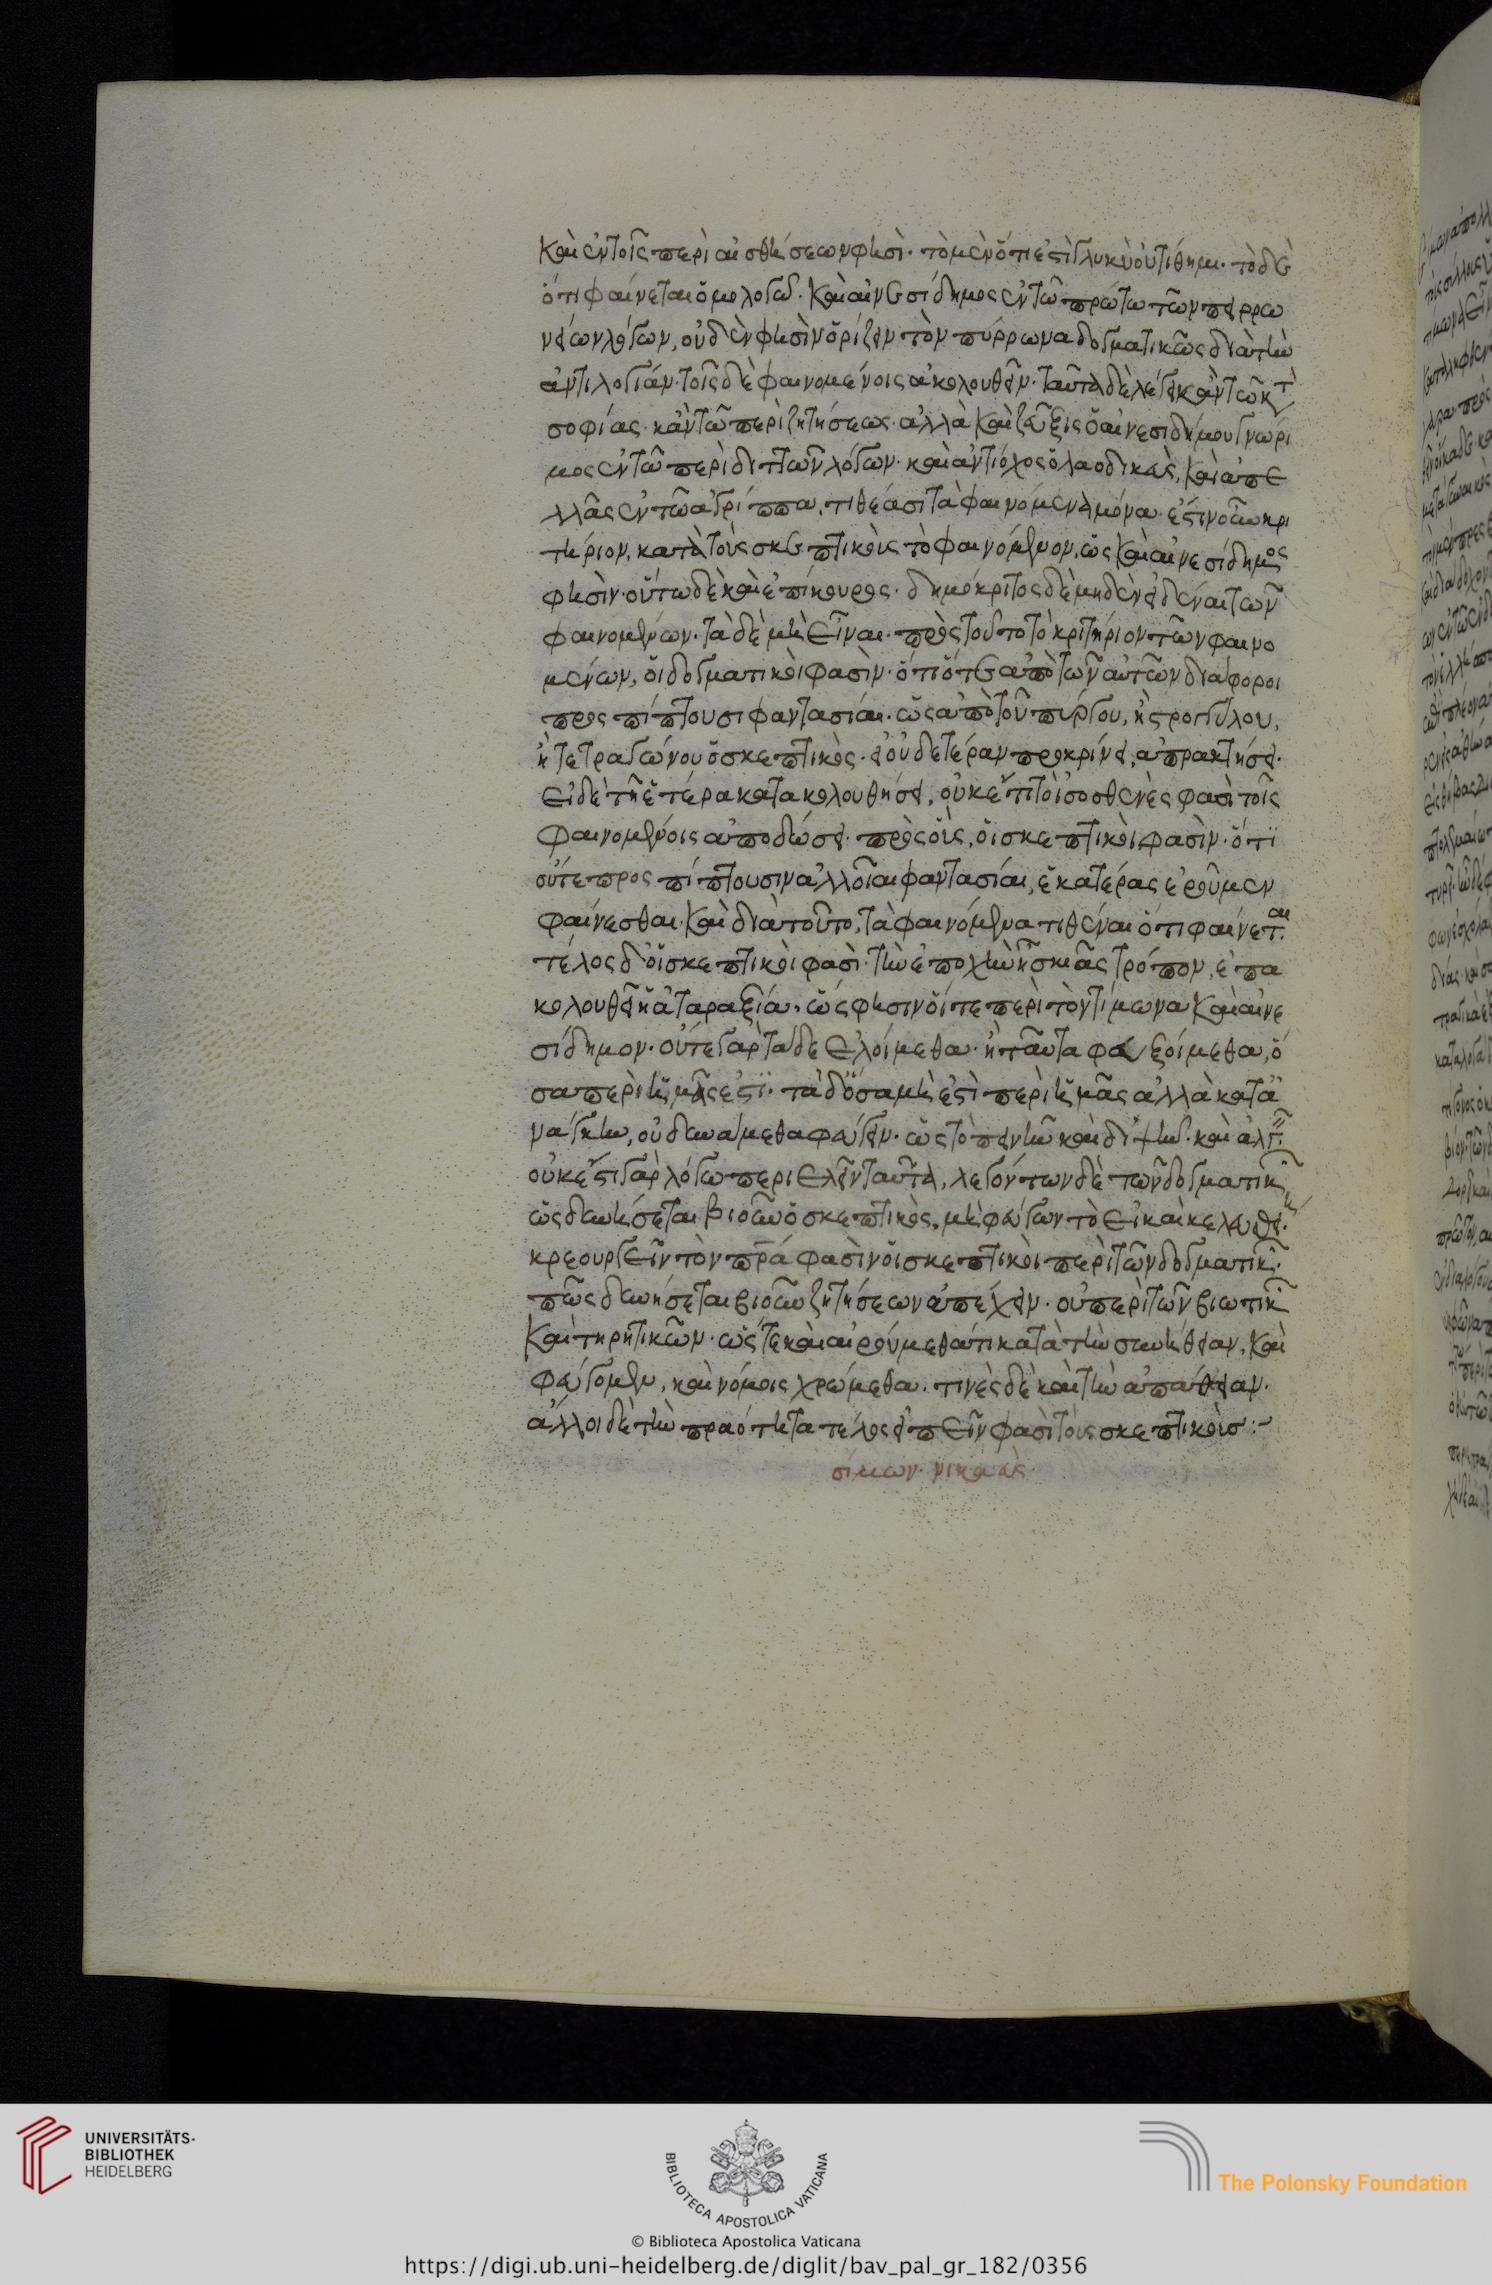 καὶ ἐν τοῖς περὶ αἰσθήσεων φησὶ· τὸ μὲν ὅτι ἐστὶ γλυκὺ οὐ τίθημι· τὸ δὲ
ὅτι φαίνεται ὁμολογῶ· καὶ αἰνεσίδημος ἐν τῶ πρώτω τῶν πυρρω
νείων λόγων, οὐδέν φησιν ὁρίζειν τὸν πύρρωνα δογματικῶς διὰ τὴν
ἀντιλογίαν· τοῖς δὲ φαινομένοις ἀκολουθεῖν· ταῦτα δὲ λέγει κἀν τῶ κτ
σοφίας· κἀν τῶ περὶ ζητήσεως· ἀλλὰ καὶ ζεῦξις ὁ αἰνεσιδήμου γνώρι
μος ἐν τῶ περὶ διττῶν λόγων· καὶ ἀντίοχος ὁ λαοδικεὺς, καὶ ἀπε
λλᾶς ἐν τῶ ἀγρίππα, τιθέασι τὰ φαινόμενα μόνα· ἔστιν οὖν κρι
τήριον, κατὰ τοὺς σκεπτικοὺς τὸ φαινόμενον, ὡς καὶ αἰνεσίδημος
φησὶν· οὕτω δὲ καὶ ἐπίκουρος· δημόκριτος δὲ μηδὲν εἰδέναι τῶν
φαινομένων· τὰ δὲ μὴ εἶναι· πρὸς τοῦτο τὸ κριτήριον τῶν φαινο
μένων, οἱ δογματικοὶ φασὶν· ὅτι ὅτε ἀπὸ τῶν αὐτῶν διάφοροι
προσπίπτουσι φαντασίαι· ὡς ἀπὸ τοῦ πύργου, ἢ στρογγύλου,
ἢ τετραγώνου ὁ σκεπτικὸς· εἰ οὐδετέραν προκρίνει, ἀπρακτήσει·
εἰ δὲ τῆ ἑτέρα κατακολουθήσει, οὐκέτι τὸ ἰσοσθενὲς φασὶ τοῖς
φαινομένοις ἀποδώσει· πρὸς οὓς, οἱ σκεπτικοὶ φασὶν· ὅτι
ὅτε προσπίπτουσιν ἀλλοῖαι φαντασίαι, ἑκατέρας ἐροῦμεν
φαίνεσθαι· καὶ διὰ τοῦτο, τὰ φαινόμενα τιθέναι ὅτι φαίνεται·
τέλος δ' οἱ σκεπτικοὶ φασὶ· τὴν ἐποχὴν ἧ σκιᾶς τρόπον, ἐπα
κολουθεῖ ἡ ἀταραξία, ὥς φησιν οἵ τε περὶ τὸν τίμωνα καὶ αἰνε
σίδημον· οὔτε γὰρ τάδε ἑλοίμεθα· ἢ ταῦτα φευξοίμεθα, ὅ
σα περὶ ἡμᾶς ἐστι· τὰ δ' ὅσα μὴ ἐστὶ περὶ ἡμᾶς ἀλλὰ κατα
νάγκην, οὐ δυνάμεθα φεύγειν· ὡς τὸ πεινῆν καὶ διψῆν· καὶ ἀλγεῖν
οὐκ ἔστι γὰρ λόγω περιελεῖν ταῦτα, λεγόντων δὲ τῶν δογματικ
ὡς δυνήσεται βιοῦν ὁ σκεπτικὸς, μὴ φεύγων τὸ εἰ καὶ κελευσθείη
κρεουργεῖν τὸν πρα φασὶν οἱ σκεπτικοὶ περὶ τῶν δογματικ
πῶς δυνήσεται βιοῦν ζητήσεων ἀπέχειν· οὐ περὶ τῶν βιωτικ
καὶ τηρητικῶν· ὥστε καὶ αἱρούμεθά τι κατὰ τὴν συνήθειαν, καὶ
φεύγομεν, καὶ νόμοις χρώμεθα· τινὲς δὲ καὶ τὴν ἀπάθειαν·
ἄλλοι δὲ τὴν πραότητα τέλος εἰπεῖν φασὶ τοὺς σκεπτικούς:~
τίμων· νικαεὺς·
UNIVERSITÄTS-
BIBLIOTHEK
HEIDELBERG
BIBLIOTECA APOSTOLICA VATICANA
The Polonsky Foundation
© Biblioteca Apostolica Vaticana
https://digi.ub.uni-heidelberg.de/diglit/bav_pal_gr_182/0356